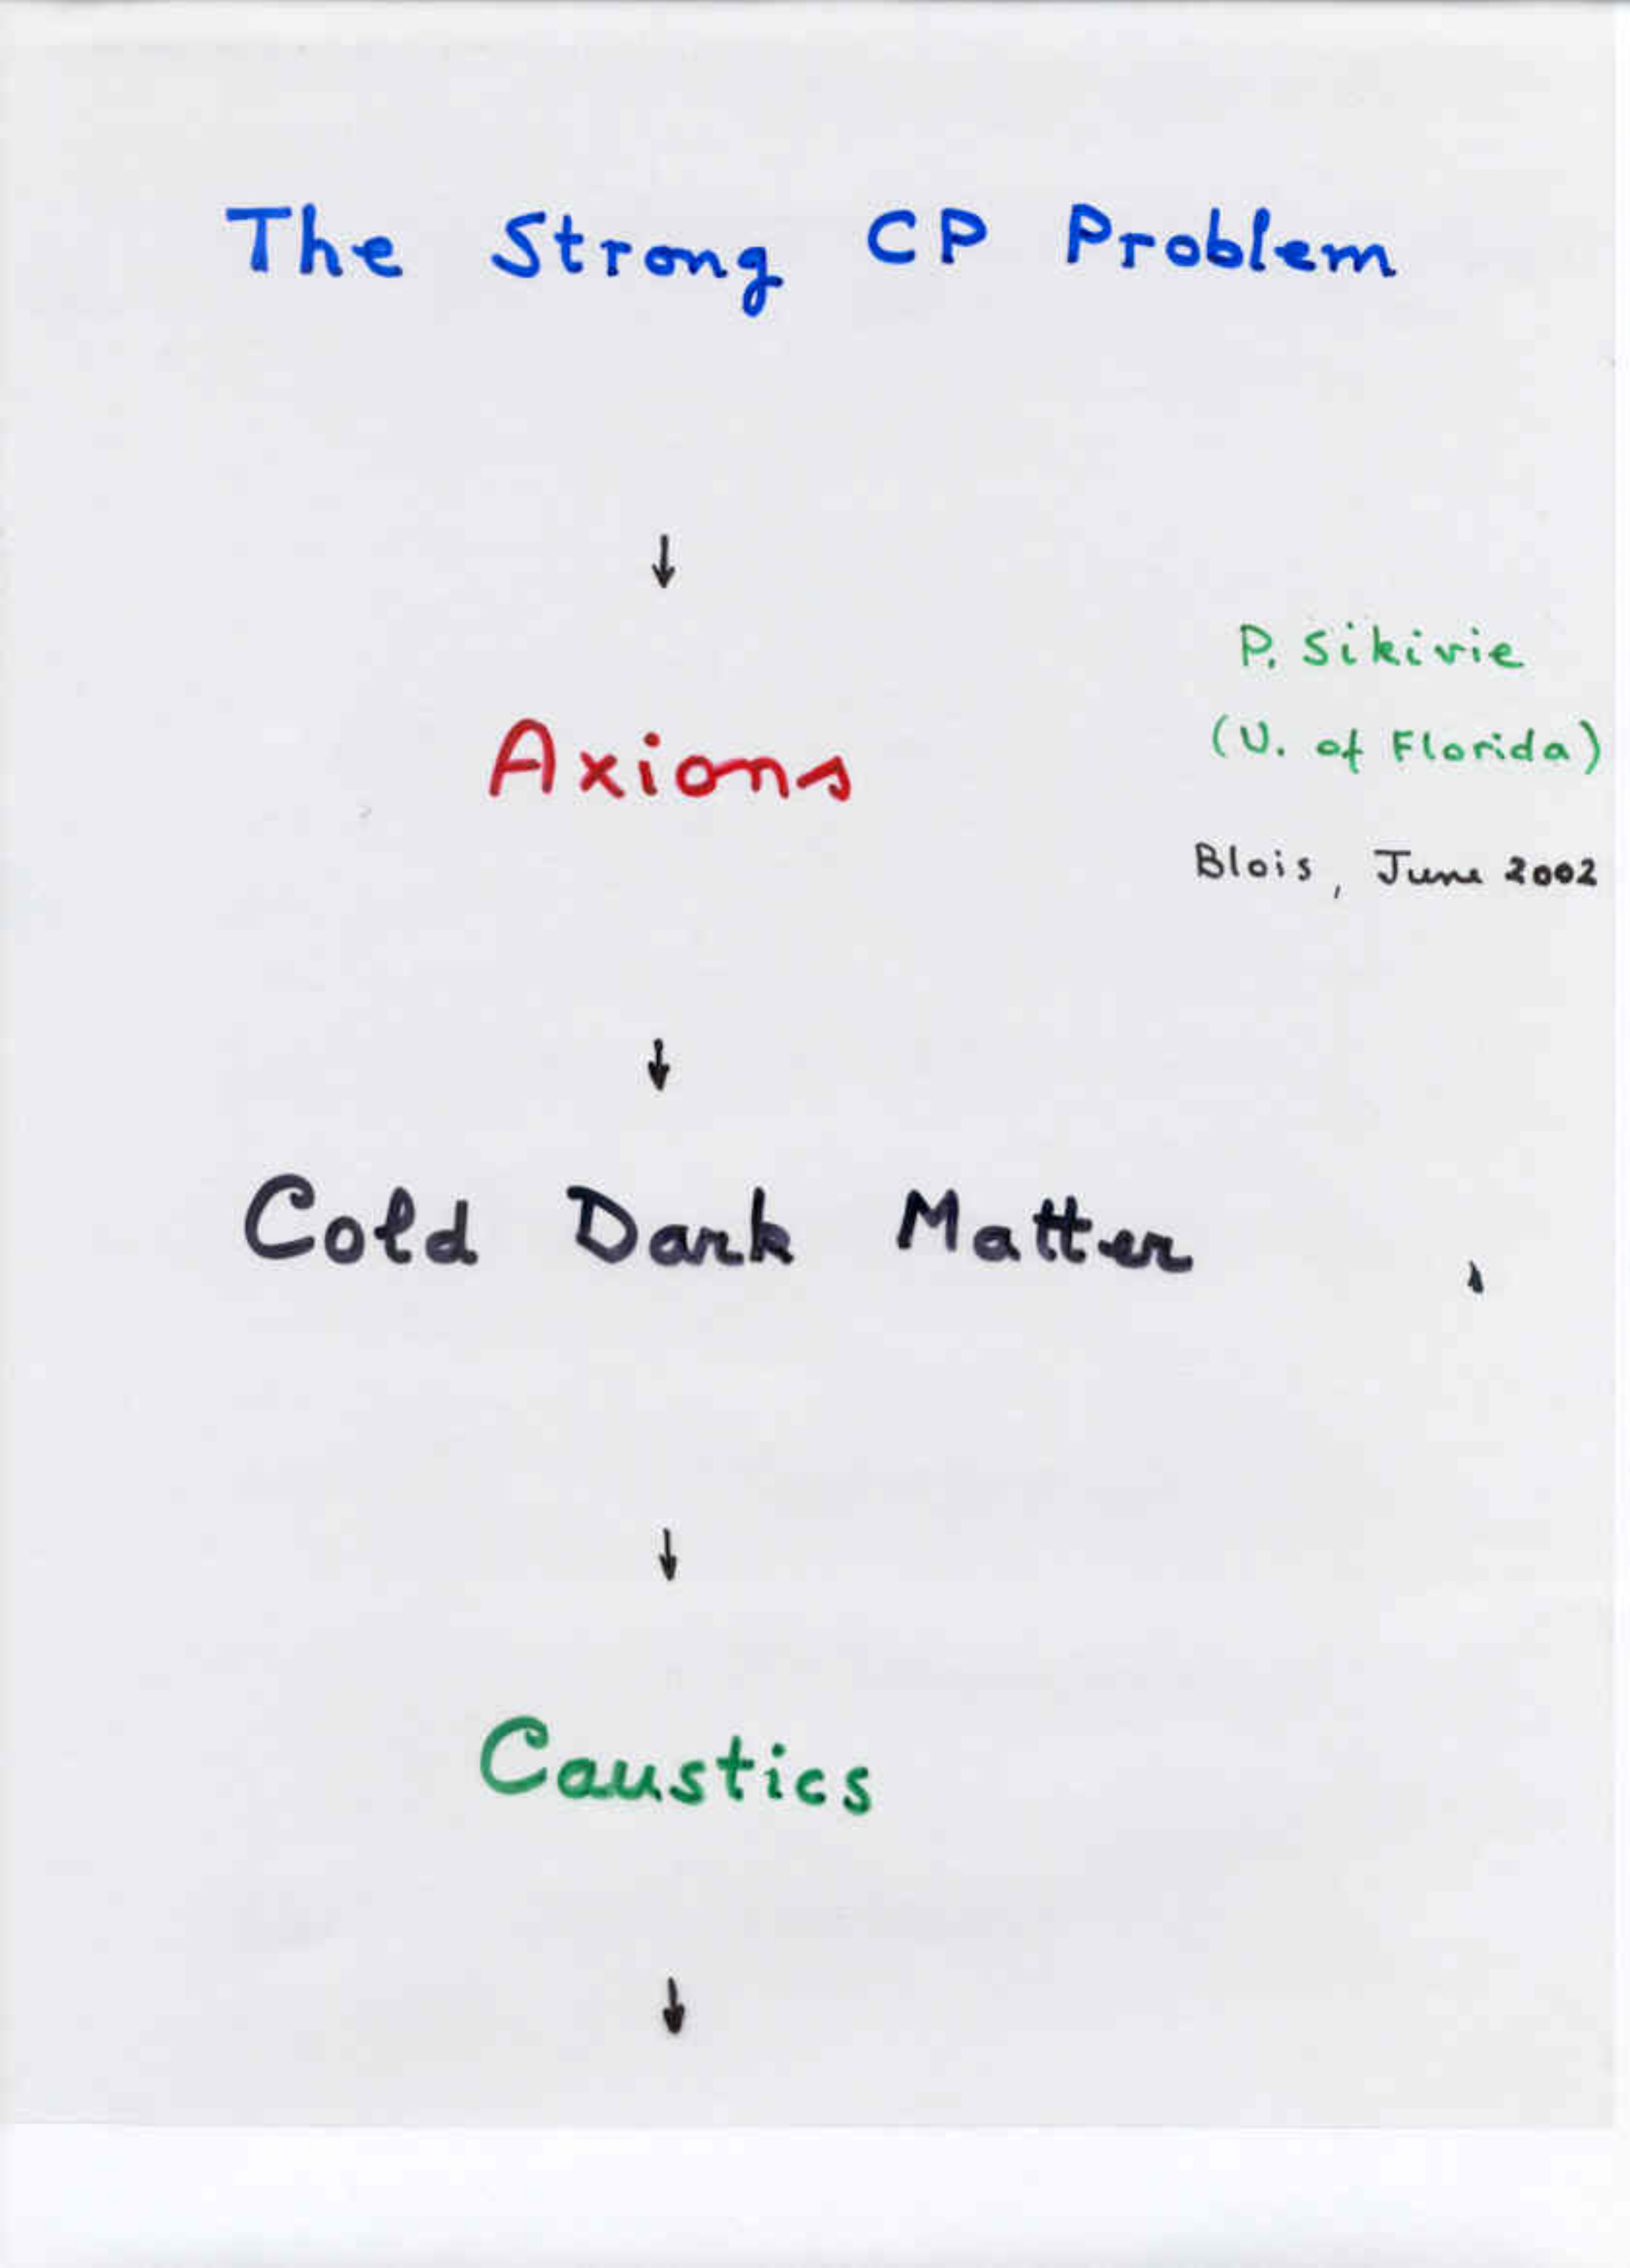 The Strong CP Problem
↓
Axions
P. Sikivie
(U. of Florida)
Blois, June 2002
↓
Cold Dark Matter
↓
Caustics
↓